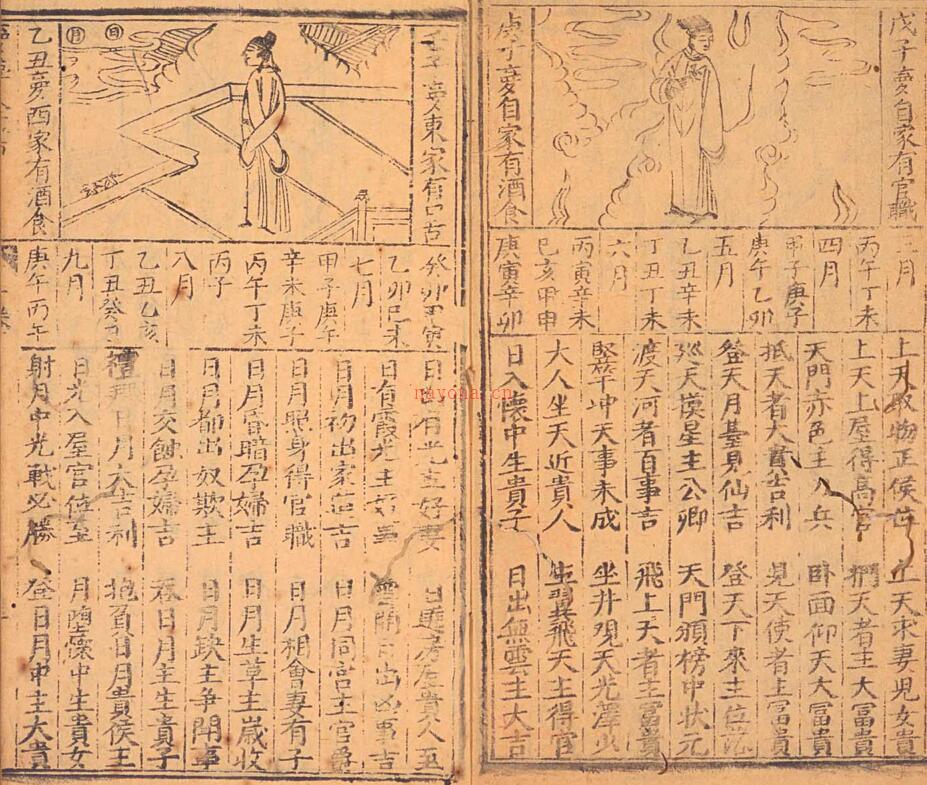 戊子夢自家有官職
庚子夢自家有酒食
三月
丙午丁未
四月
甲子庚子
庚午乙卯
五月
乙丑辛未
丁丑丁未
六月
丙寅辛未
己亥甲申
庚寅辛卯
上天取物正侯位
上天求妻兒女貴
上天上屋得高官
捫天者主大富貴
天門赤色主人兵
卧面仰天大富貴
抵天者大貴吉利
見天使者主富貴
登天月臺見仙吉
登天下來主位
巡天摸星主公卿
天門頒榜中狀元
渡天河者百事吉
飛上天者主富貴
竪竿坤天事未成
坐井观天光
大人坐天近貴人
生翼飛天主得官
日入懷中生貴子
日出無雲主大吉
壬子夢東家有口舌
乙丑夢西家有酒食
月
日
癸卯甲寅
乙卯巳未
七月
甲子庚午
辛未庚子
丙午丁未
丙子
八月
乙丑乙亥
丁丑癸
九月
庚午丙午
日 有光主好妻
日 房屋貴人至
日有霞光主好事
日出凶事吉
日月初出家庄吉
日月同宫主官爵
日月照身得官職
日月相會妻有子
日月昏暗孕婦吉
日月生草主歲收
日月都出奴欺主
日月缺主争鬪事
日月交蝕孕婦吉
吞日月主生貴子
禮拜日月大吉利
抱負日月貴侯王
日光入屋官位至
月墮懷中生貴女
射月中光戰必勝
登日月中主大貴
nayona.cn